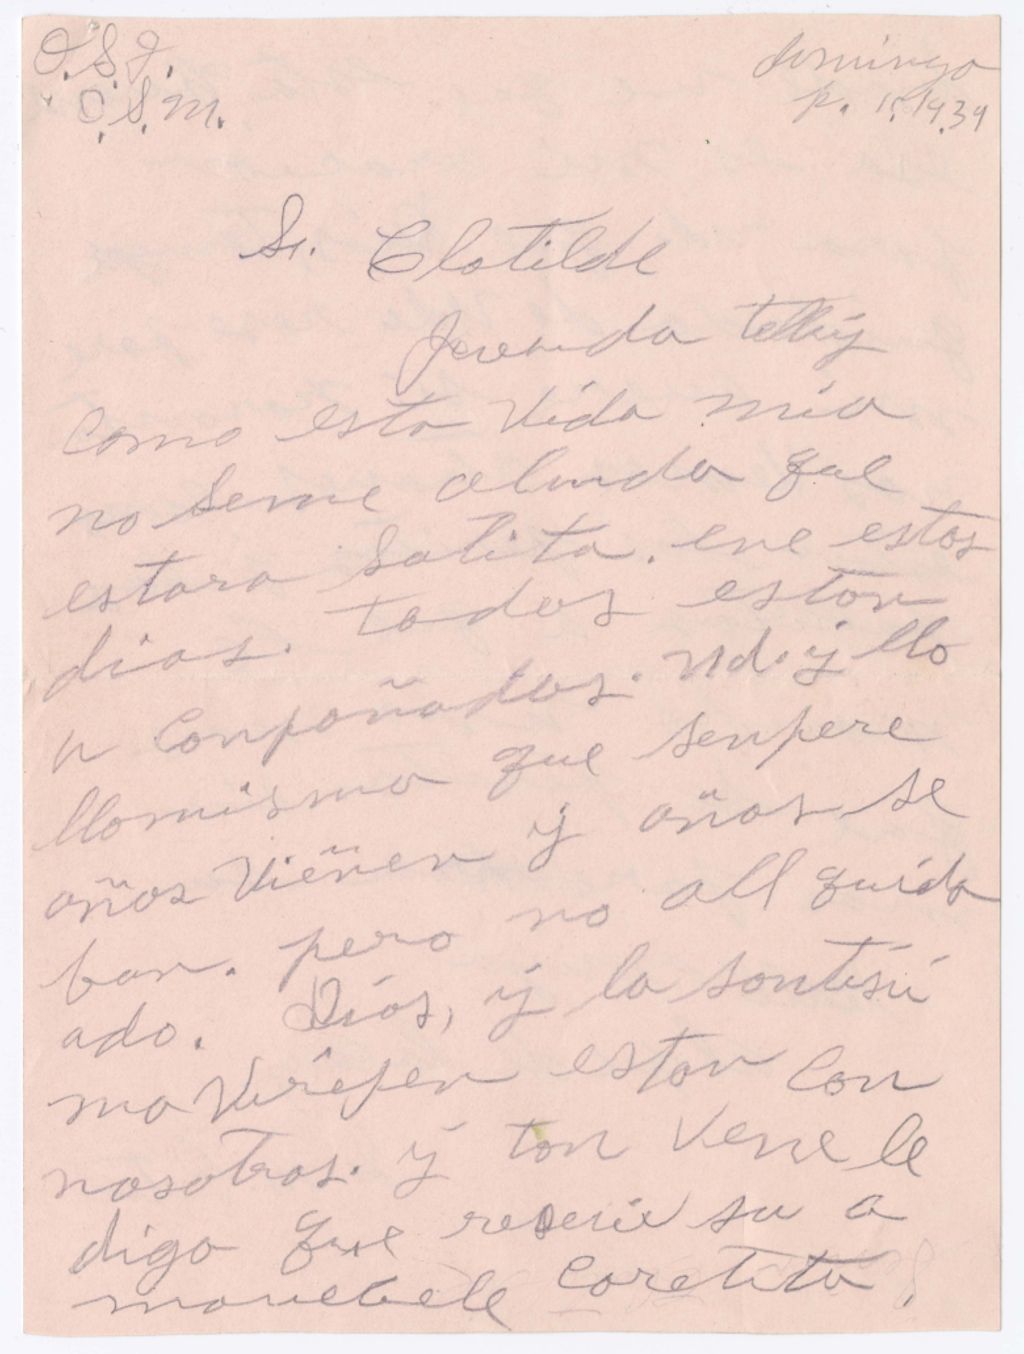 O.S.J.
O.S.M.
domingo
p. 15, 1939
Sr. Clotilde
Jeranda tellїj
Como esta Vida mia
no seme alunda que
estara Solita. ene estos
dias. todos estan
a Conpañados. Ud. ÿ llo
llomismo que senpere
años Viеñen ÿ años se
ban. pero no all quida
ado. Dios, ÿ la santisi
ma Virejen estan Con
nosotros. ÿ tan Vene le
digo que reseriі su a
mauebele Caretita.